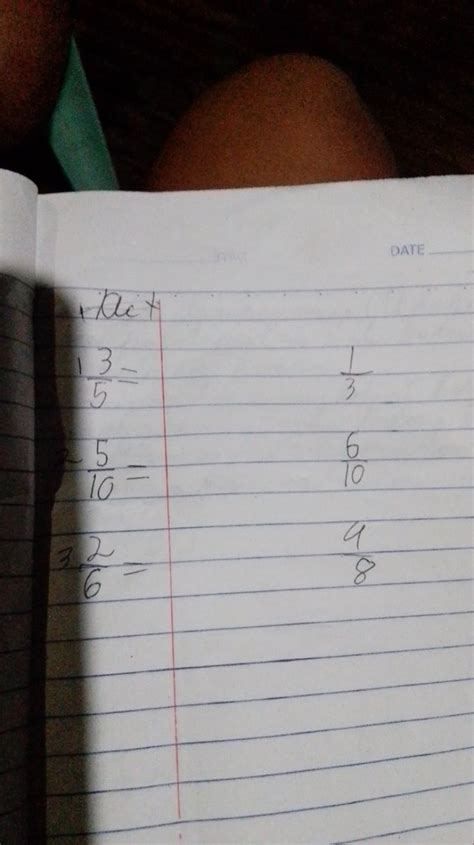 DATE
1 3/5 = 1/3
2 5/10 = 6/10
3 2/6 = 4/8